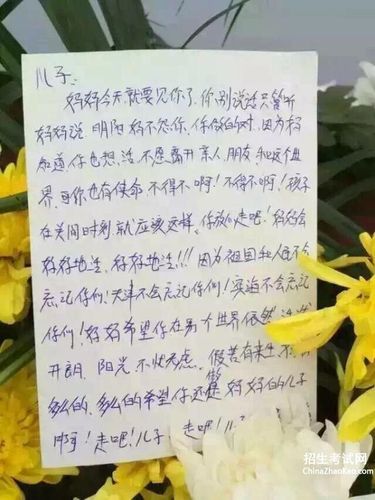 儿子:
妈妈今天就要见你了,你别说话只管听
妈妈说,明阳,妈不怨你,你做的对,因为妈
知道,你也想活,不愿离开亲人,朋友和这个世
界,可你有使命,不得不啊!不得不啊!孩子
在关间时刻,就应该这样,你放心走吧!妈妈会
好好地活,好好地活!!!因为祖国和人民不会
忘记你们!天津不会忘记你们!滨海不会忘记
你们!妈妈希望你在另个世界依然活泼
开朗,阳光,不忧不虑,假若有来生,不
多么的,多么的希望你还做妈妈的儿子
啊!走吧!儿子,走吧!儿子
招生考试网
ChinaZhaoKao.com